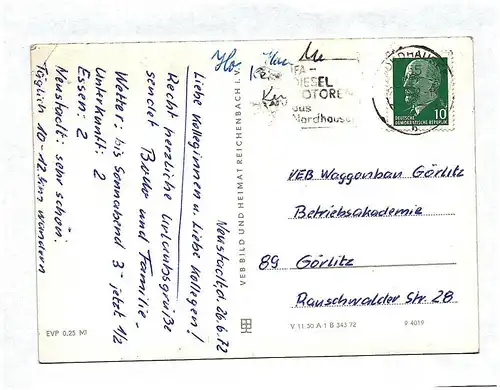 Neustadt, d. 26.6.72
Liebe Kolleginnen u. Liebe Kollegen!
Recht herzliche Urlaubsgrüße
sendet und Familie.
Wetter: bis Sonnabend 3 - jetzt 1/2
Unterkunft: 2
Essen: 2
Neustadt: sehr schön.
Täglich 10-12 km wandern
EVP 0,25 M
VEB BILD UND HEIMAT REICHENBACH i. V.
IFA-
DIESEL
MOTOREN
aus
Nordhausen
DEUTSCHE
DEMOKRATISCHE REPUBLIK
10
VEB Waggonbau Görlitz
Betriebsakademie
89 Görlitz
Rauschwalder Str. 28
V 11 50 A 1 B 343 72
9 4019